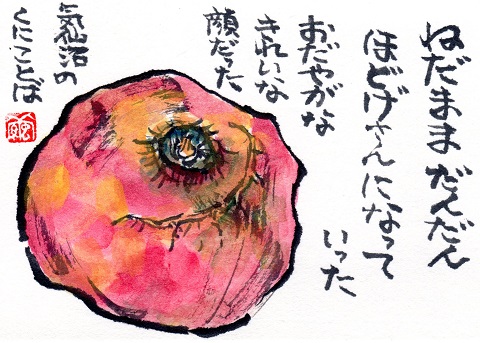 ねだまま だんだん
ほどけさんになって
いった
おだやがな
きれいな
顔だった
気仙沼の
くにことば